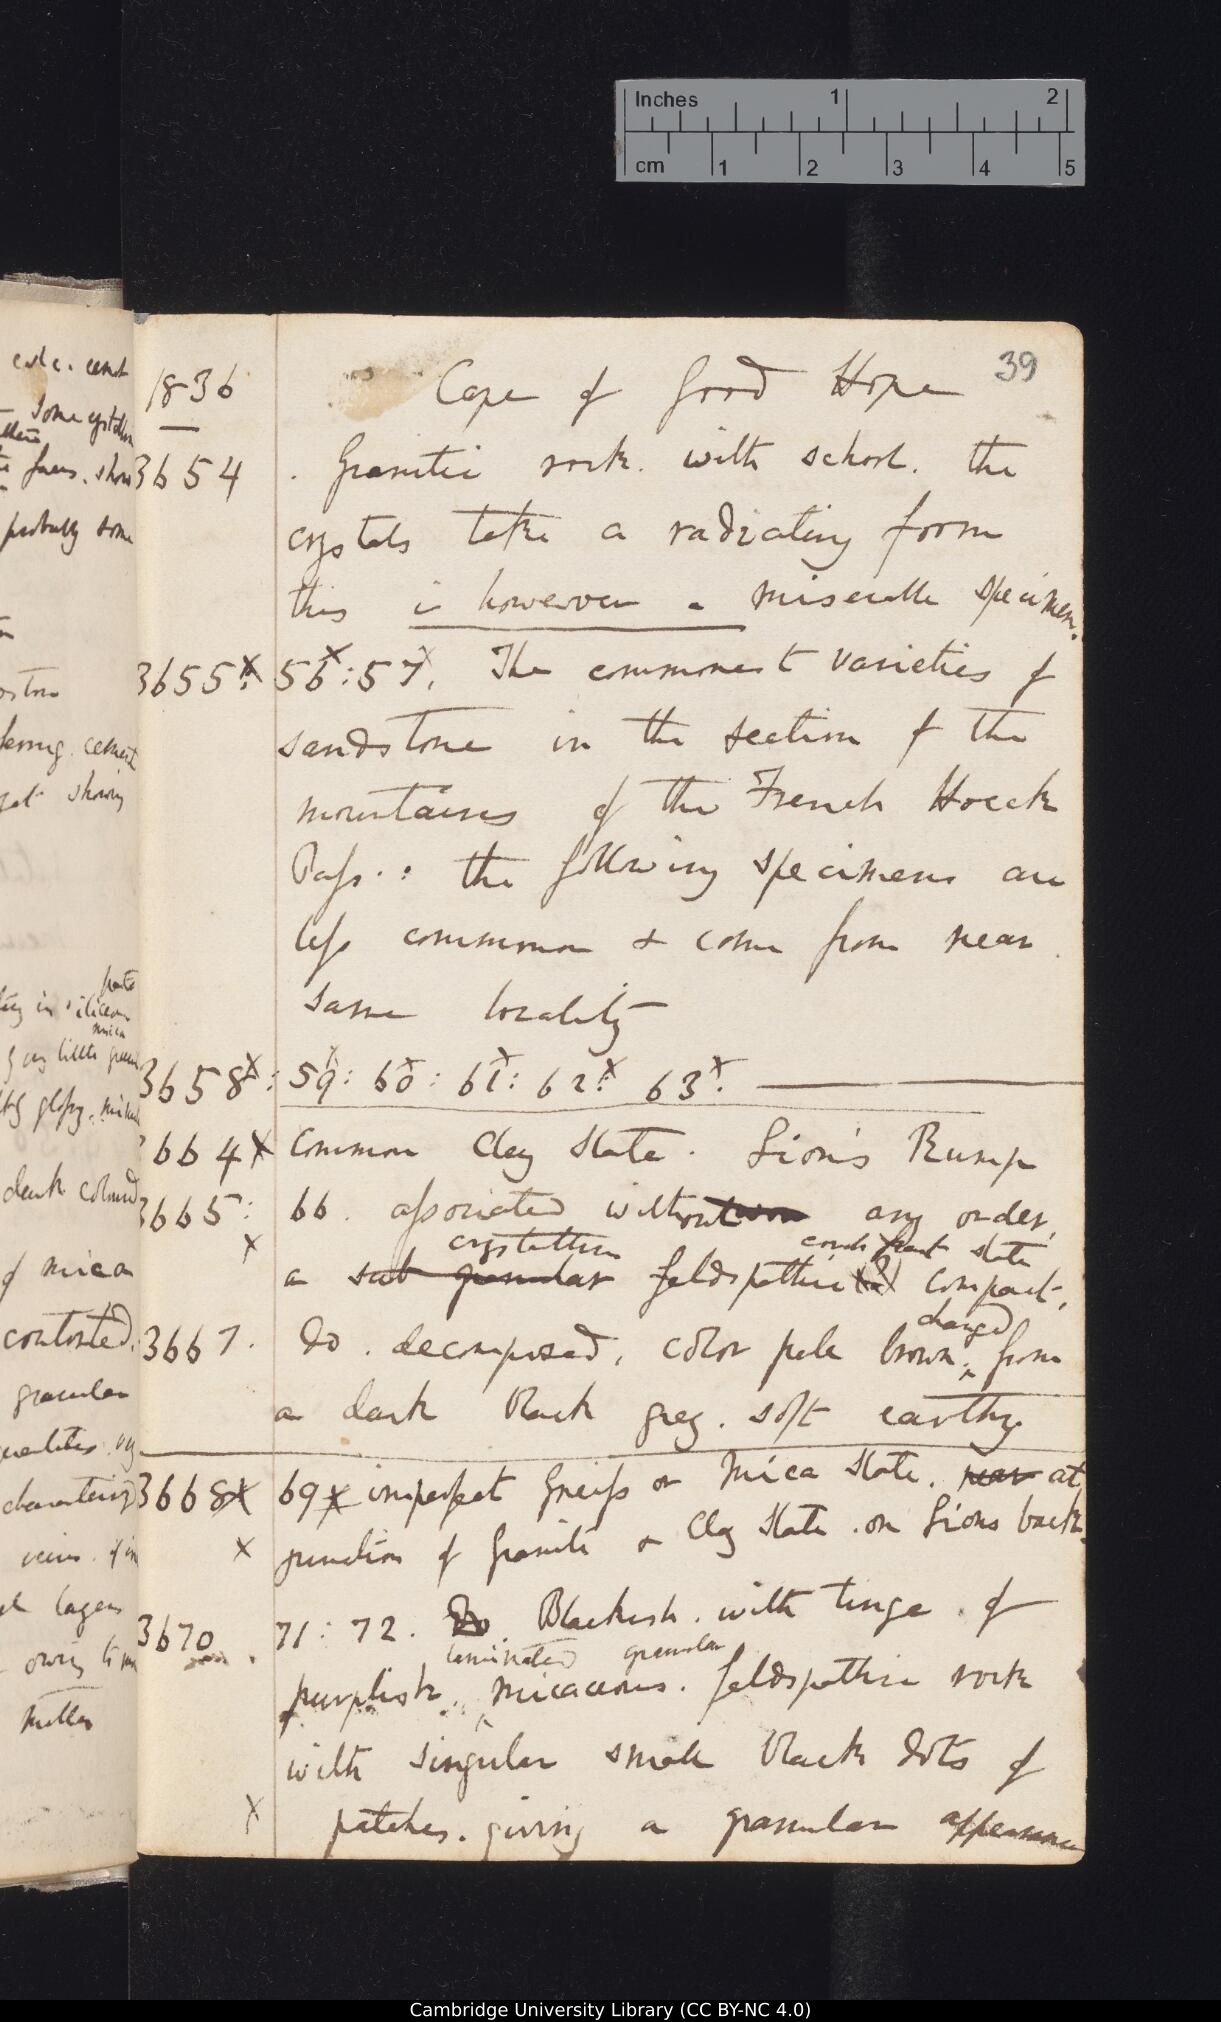 Inches 1 2
cm 1 2 3 4 5
39
1836 Cape of Good Hope
3654 . Granitic rock. with schorl. the
crystals take a radiating form
this is however a miserable specimen.
3655x: 56x: 57x. The commonest varieties of
sandstone in the section of the
mountains of the French Hoeck
Pass.: the following specimens are
less common & come from near
same locality
3658x: 59x: 60x: 61x: 62x: 63x.
3664x Common Clay Slate. Lion's Rump
3665: 66. associated without any order,
x crystalline slate
a sub granular feldspathic (?) compact,
changed
3667. do. decomposed, color pale brown, from
a dark black grey. soft earthy
3668x 69x imperfect Gneiss or Mica Slate. near at
x junction of Granite & Clay Slate. on Lions back.
3670. 71: 72. Do. Blackish. with tinge of
laminated granular
purplish, micaceous. feldspathic rock
with singular small black dots of
x patches. giving a granular appearance
calc. cement
some
faces. show
probably some
cement
showing
in siliceous
mica
little green
glossy.
dark coloured
of mica
contorted.
granular
veins. of
layers
owing to
matter
Cambridge University Library (CC BY-NC 4.0)